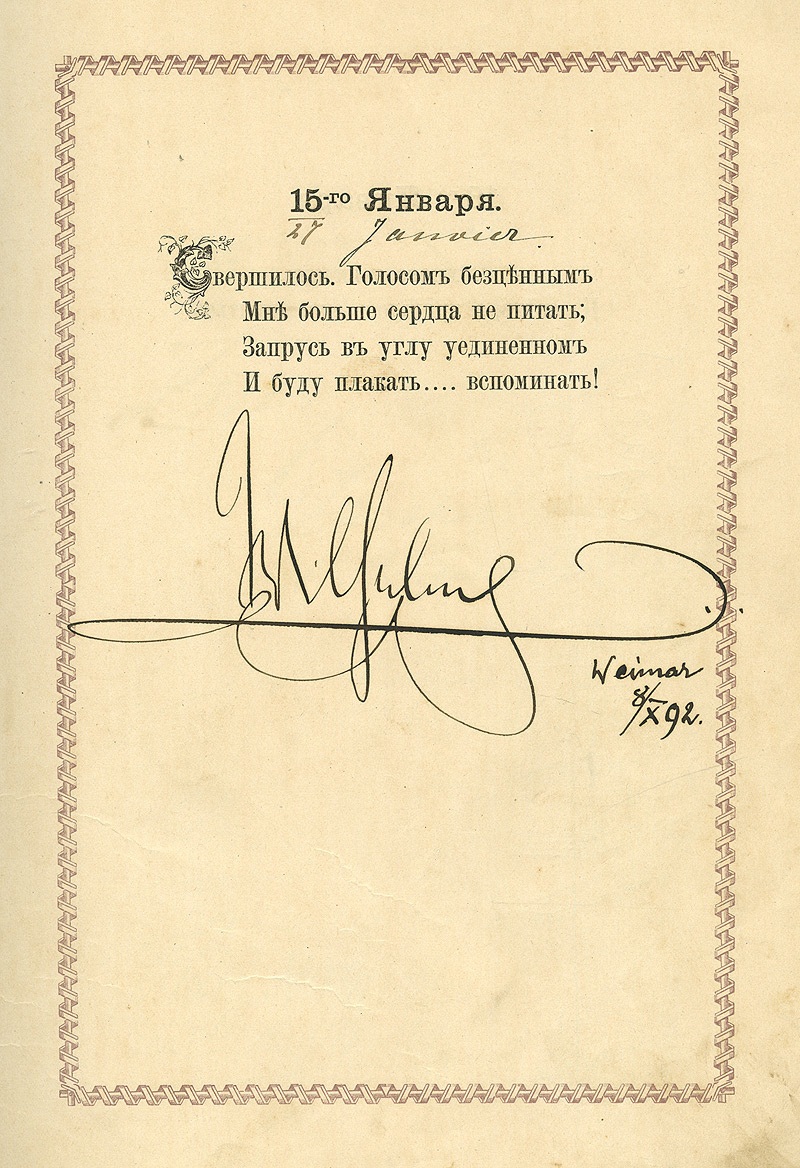 15-го Января.
27 Janvier.
Свершилось. Голосомъ безцѣннымъ
Мнѣ больше сердца не питать;
Запрусь въ углу уединенномъ
И буду плакать.... вспоминать!
Wilhelm
Weimar
8/X 92.